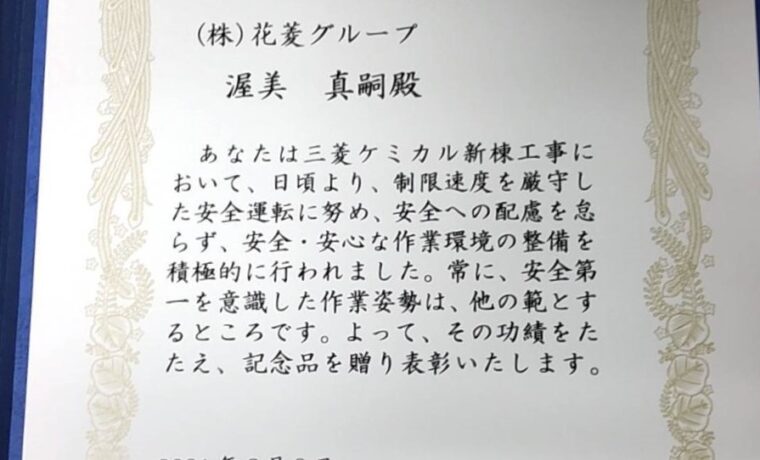 (株)花菱グループ
渥美 真嗣殿
あなたは三菱ケミカル新棟工事に
おいて、日頃より、制限速度を厳守し
た安全運転に努め、安全への配慮を怠
らず、安全・安心な作業環境の整備を
積極的に行われました。常に、安全第
一を意識した作業姿勢は、他の範とす
るところです。よって、その功績をた
たえ、記念品を贈り表彰いたします。